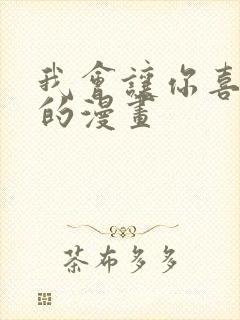 我會讓你喜
的漫畫
茶布多多